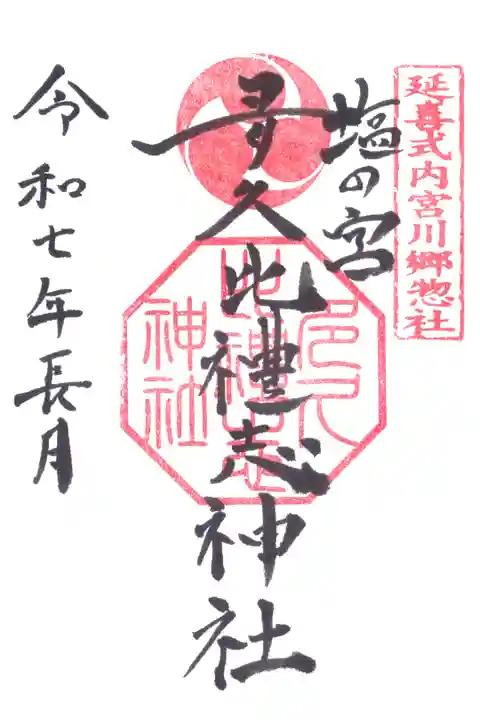 延喜式内宮川郷惣社
塩の宮
多久比禮志神社
多久
比禮志
神社
令和七年長月